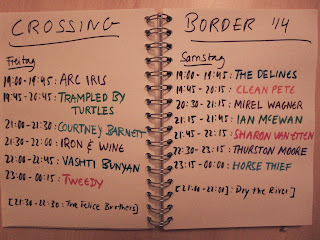 CROSSING
Freitag
19:00 - 19:45 : ARC IRIS
19:45 - 20:45 : TRAMPLED BY
TURTLES
21:00 - 21:30 : COURTNEY BARNETT
21:30 - 22:00 : IRON & WINE
22:00 - 22:45 : VASHTI BUNYAN
23:00 - 00:15 : TWEEDY
[21:30 - 22:30 : The Felice Brothers]
BORDER 1/4
Samstag
19:00 - 19:45 : THE DELINES
19:45 - 20:15 : CLEAN PETE
20:30 - 21:15 : MIREL WAGNER
21:15 - 21:45 : IAN McEWAN
21:45 - 22:15 : SHARON VAN ETTEN
22:30 - 23:15 : THURSTON MOORE
23:15 - 00:00 : HORSE THIEF
[21:00 - 22:00] : Dry the River]